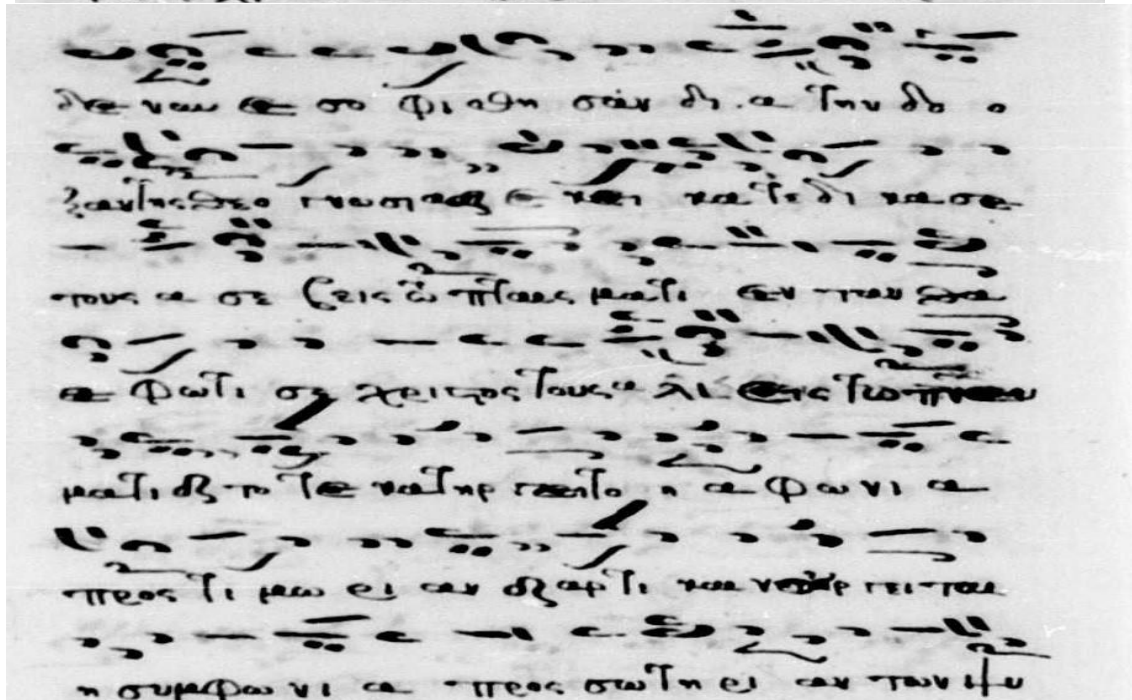 δε νυν ε σο φι σθη σαν δι α την δο ο
ξαν της θεο γνωσι ας ε κει κα τε δι κα σε
τους α σε βεις τω πταις μα τι εν ταυ θα
ε φωτι σε χριστος τους α λι εις τω πνευ
ματι το τε κατηρ γασθη η α φω νι α
προς τι μω ρι αν αρτι και νουρ γειται
η συμφω νι α προς σωτη ρι αν των ψυ